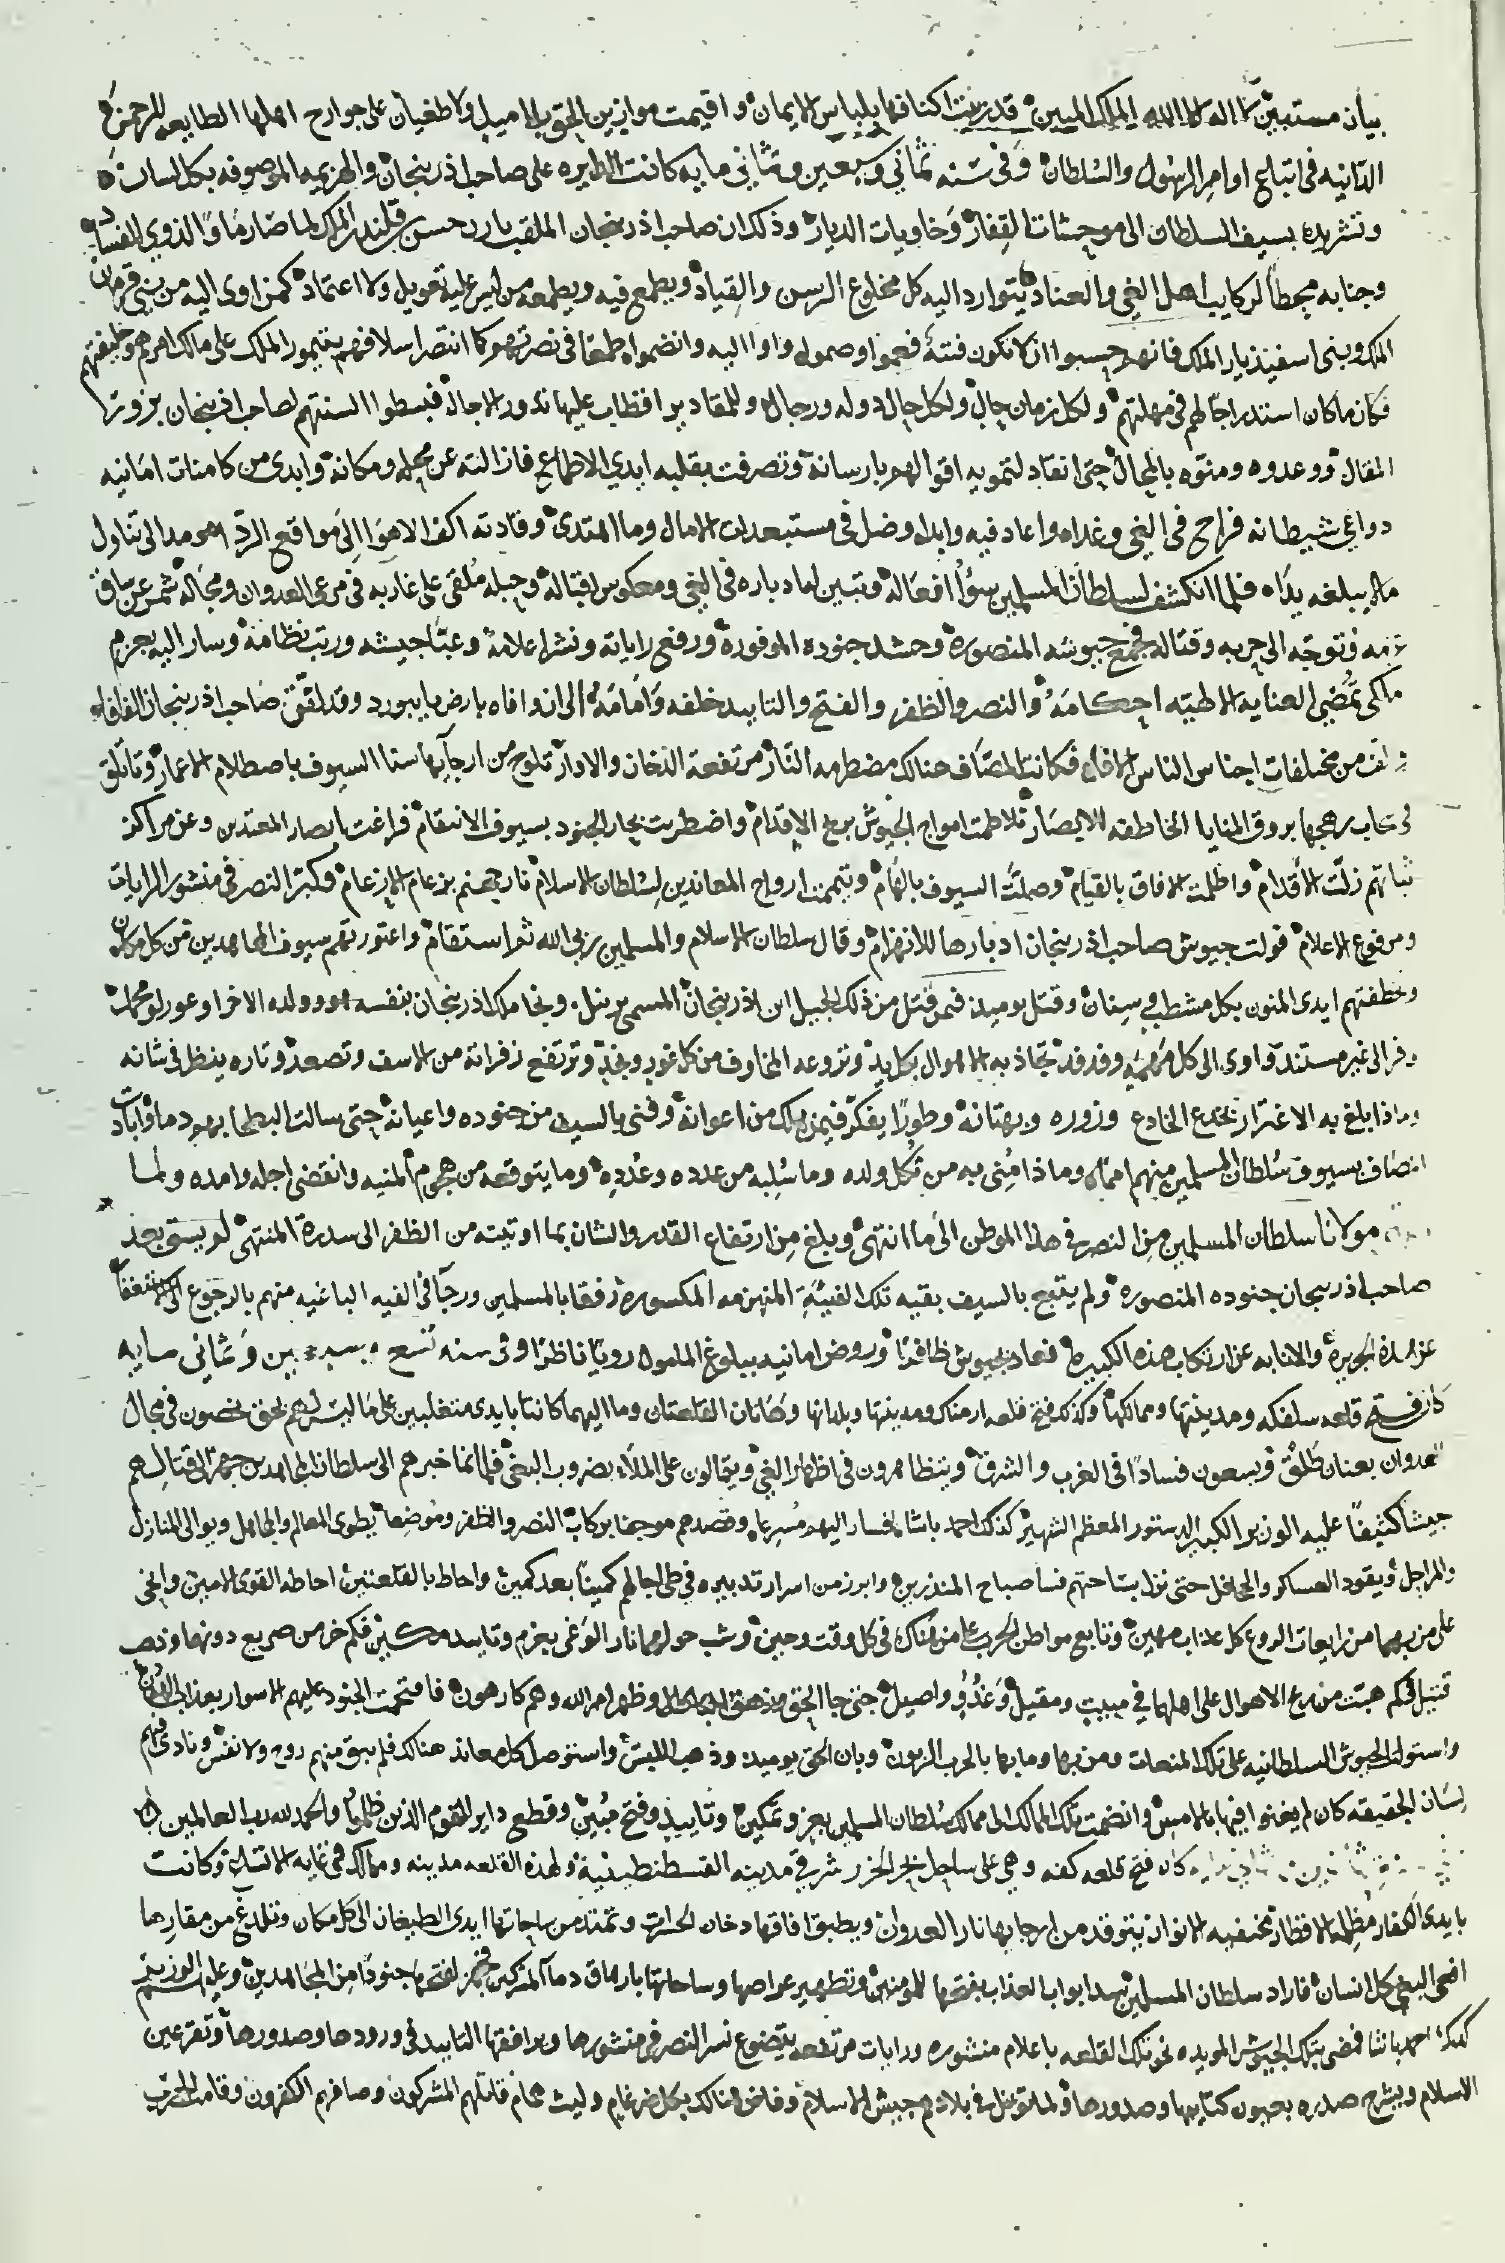 بيان مستبين لا اله الا الله الملك المبين قد زينت اكنافها بلباس الايمان واقيمت موازين الحق بلا ميل ولا طغيان على جوارح اهلها الطايعه للرحمن
الدانيه فى اتباع اوامر الرسول والسلطان وفى سنه ثمانى وسبعين وثمانى مايه كانت الدايره على صاحب اذربنجان والهزيمه الموصوفه بكل لسان
وتشريده بسيف السلطان الى موحشات القفار وخاويات الديار وذلك ان صاحب اذربنجان الملقب بازدحسن قلندر الملك لما صار ماوًا لذوي الفساد
وجنابه محطا لركايب اهل الغي والعناد يتوارد اليه كل مخلوع الرسن والقياد ويطمع فيه ويطمعه من ليس عليه تعويل ولا اعتماد كمن اوى اليه من بنى قرمان
الملك وبنى اسفنديار الملك فانهم حسبوا ان لا تكون فتنة فعموا وصموا واووا اليه وانضموا طمعا فى نصرتهم كما انتصر اسلافهم بتيمور الملك على مالك امرهم وخليفتهم
فكان ما كان استدراجا لهم فى مهلتهم ولكل زمان حال ولكل حال دوله ورجال وللمقادير اقطاب عليها تدور الاجال فبسطوا السنتهم لصاحب اذربنجان بزور
المقال ووعدوه ومنوه بالمحال حتى انقاد لتمويه اقوالهم بارسانه وتصرفت بقلبه ايدي الاطماع فازالته عن محله ومكانه وابدى من كامنات امانيه
دواعي شيطانه فراح فى الغي وغداه واعاد فيه وابداه وضل فى مستبعدات الامال وما اهتدى وقادته اكف الاهوا الى مواقع الردى ومد الى تناول
مالا يبلغه يداه فلما انكشف لسلطان المسلمين سوا افعاله وتبين له ادباره فى الغي ومعكوس اقباله وحبله ملقى على غاربه فى مرعى العدوان ومجاله شمر عن ساق
عزمه وتوجه الى حربه وقتاله فجمع جيوشه المنصوره وحشد جنوده الموفوره ورفع راياته ونشر اعلامه وعبا جيشه ورتب نظامه وسار اليه بعزم
ملكى تمضي العنايه الالهيه احكامه والنصر والظفر والفتح والتاييد خلفه وامامه الى ان وافاه بارض بايبورد وقد لقى صاحب اذربنجان
من مختلفات اجناس الناس فكانت المصاف هنالك مضطرمه النار مرتفعة الدخان والاوار تلوح من ارجايها سنا السيوف باصطلام الاعمار وتاتلق
فى سحاب رهجها بروق المنايا الخاطفه للابصار تلاطمت امواج الجيوش بريح الاقدام واضطربت بحار الجنود بسيوف الانتقام فزاغت ابصار المعتدين وعن مراكز
ثباتهم زلت الاقدام واظلمت الافاق بالقيام وصلت السيوف بالهام ويتممت ارواح المعاندين لسلطان الاسلام نار جهنم بزعام الارغام وكبر النصر فى منشور الرايات
ومرفوع الاعلام فولت جيوش صاحب اذربنجان ادبارها للانهزام وقال سلطان الاسلام والمسلمين ربى الله ثم استقام واعتورتهم سيوف المجاهدين من كل مكان
وخطفتهم ايدى المنون بكل مشطب وسنان وقتل يوميذ فيمن قتل من ذلك الجبل ابن اذربنجان المسمى ونجا ملك اذربنجان بنفسه هو وولده الاخر
وفر الى غير مستند واوى الى كل وفدفد تجاذبه الاهوال بكل يد وتروعه المخاوف من كل غور ونجد وترتفع زفراته من الاسف وتصعد وتاره ينظر فى شانه
وماذا بلغ به الاغترار بخدع الخادع وزوره وبهتانه وطورا يفكر فيمن هلك من اعوانه وفنى بالسيف من جنوده واعيانه حتى سالت البطحا بهم دما
بسيوف سلطان المسلمين منهم وماذا مني به من ثكل ولده وما سلبه من عدده وعدده وما يتوقعه من هجوم المنيه وانقضى اجله وامده ولما
مولانا سلطان المسلمين من النصر فى هذا الموطن الى ما انتهى وبلغ من ارتفاع القدر والشان بما اوتيه من الظفر الى سدرة المنتهى لم يتبع بعد
صاحب اذربيجان جنوده المنصوره ولم يتبع بالسيف بقيه تلك الفية المنهزمه المكسوره رفقا بالمسلمين ورجآ فى الفيه الباغيه منهم بالرجوع
عن هذه الجريره والانابه عن ارتكاب هذه الكبيره فعاد بجيوش ظافرا وروض امانيه ببلوغ المامول رويا ناظرا وفى سنه تسع وسبعين وثمانى مايه
كان فتح قلعه سلفكه ومدينتها وممالكها وكذلك فتح قلعه ارمناك ومدينتها وبلدانها وهاتان القلعتان وما اليهما كانتا بايدى متغلبين على ما ليس لهم بحق يخصون فى مجال
العدوان بعنان طلق ويسعون فسادا فى الغرب والشرق ويتظاهرون فى اظهار الغي ويتمالون على الملاء بضروب البغي فلما انما خبرهم الى سلطان المجاهدين جهز الى قتالهم
جيشا كثيفا عليه الوزير الكبير الدستور المعظم الشهير كذلك احمد باشا فسار اليهم مسرعا وقصدهم موجفا بركاب النصر والظفر وموضعا يطوى المعالم والمجاهل ويوالى المنازل
والمراحل ويقود العساكر والجحافل حتى نزل بساحتهم فسا صباح المنذرين وابرز من اسرار تدبيره فى طى اجالهم كمينا بعد كمين واحاط بالقلعتين احاطه القوى الامين والجى
على من بهما من رايعات الروع كل عذاب مهين وتابع مواطن الحرب على من هناك فى كل وقت وحين وشب حولهما نار الوغى بعزم وتاييد مكين فكم خر من صريع دونهما وذهب
قتيل وكم هبت من ريح الاهوال على اهلها فى مبيت ومقيل وغدو واصيل حتى جا الحق وزهق الباطل وظهر امر الله وهم كارهون فاقتحمت الجنود عليهم الاسوار بعذاب الهون
واستولت الجيوش السلطانيه على تلك المنعات ومن بها وما بها بالحرب الزبون وبان الحق يوميذ وذهب اللبس واستوصل كل معاند هنالك فلم يبق منهم روح ولا نفس ونادى فيهم
لسان الحقيقه كان لم يغنوا فيها بالامس وانضمت تلك الممالك الى ممالك سلطان المسلمين بعز وتمكين وتاييد وفتح مبين وقطع دابر القوم الذين ظلموا والحمد لله رب العالمين
كان فتح قلعه كفه وهى على ساحل بحر الخزر شرقى مدينه القسطنطينية ولهذه القلعه مدينه وممالك فى غايه الاتساع وكانت
بايدى الكفار مظلمه الاقطار مختفيه الانوار يتوقد من ارجايها نار العدوان ويطبق افاقها دخان الحرات وتمتد من ساحاتها ايدى الطغيان الى كل مكان وتلدغ من مقارها
افعى البغي كل انسان فاراد سلطان المسلمين سد ابواب العذاب بفتحها للمومنين وتطهير عراصها وساحاتها باراقه دمآ المشركين فجهز لفتحها جنودا من المجاهدين وعليهم الوزير
كدك احمد باشا فمضى بتلك الجيوش المويده نحو تلك القلعه باعلام منشوره ورايات مرتفعه يتضوع نشر النصر فى منشورها ويرافقها التاييد فى ورودها وصدورها وتقر عين
الاسلام ويشرح صدره بعيون كتايبها وصدورها ولما توغل فى بلادهم جيش الاسلام وفاض هنالك بكل ضرغام وليث همام قاتلهم المشركون وصافهم الكفرون وقامت الحرب